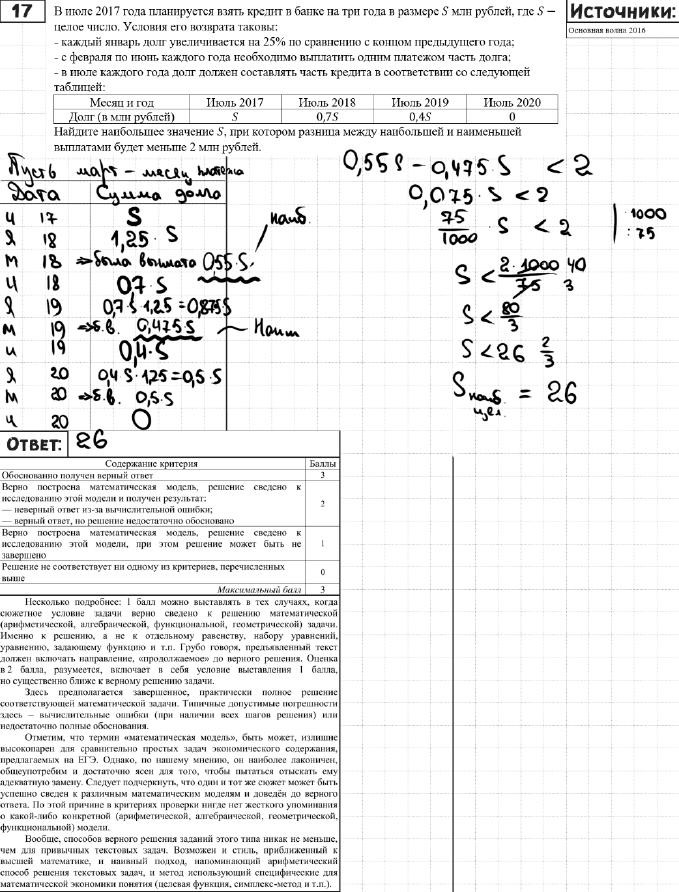 17
В июле 2017 года планируется взять кредит в банке на три года в размере S млн рублей, где S –
целое число. Условия его возврата таковы:
- каждый январь долг увеличивается на 25% по сравнению с концом предыдущего года;
- с февраля по июнь каждого года необходимо выплатить одним платежом часть долга;
- в июле каждого года долг должен составлять часть кредита в соответствии со следующей
таблицей:
Месяц и год Июль 2017 Июль 2018 Июль 2019 Июль 2020
Долг (в млн рублей) S 0,7S 0,4S 0
Найдите наибольшее значение S, при котором разница между наибольшей и наименьшей
выплатами будет меньше 2 млн рублей.
Источники:
Основная волна 2016
Пусть март – месяц платежа
Дата Сумма долга
И 17 S
Я 18 1,25 · S
М 18 ⇒ была выплата 0,55·S
наиб.
И 18 0,7·S
Я 19 0,7·S·1,25=0,875S
М 19 ⇒ б.в. 0,475S
Наим
И 19 0,4·S
Я 20 0,4·S·1,25=0,5·S
М 20 ⇒ б.в. 0,5·S
И 20 0
0,55S – 0,475·S < 2
0,075·S < 2
75/1000 · S < 2 | ·1000 :75
S < 2·1000/75 40 3
S < 80/3
S < 26 2/3
S наиб. цел. = 26
Ответ: 26
Содержание критерия Баллы
Обоснованно получен верный ответ 3
Верно построена математическая модель, решение сведено к
исследованию этой модели и получен результат:
— неверный ответ из-за вычислительной ошибки;
— верный ответ, но решение недостаточно обосновано
2
Верно построена математическая модель, решение сведено к
исследованию этой модели, при этом решение может быть не
завершено
1
Решение не соответствует ни одному из критериев, перечисленных
выше
0
Максимальный балл 3
Несколько подробнее: 1 балл можно выставлять в тех случаях, когда
сюжетное условие задачи верно сведено к решению математической
(арифметической, алгебраической, функциональной, геометрической) задачи.
Именно к решению, а не к отдельному равенству, набору уравнений,
уравнению, задающему функцию и т.п. Грубо говоря, предъявленный текст
должен включать направление, «продолжаемое» до верного решения. Оценка
в 2 балла, разумеется, включает в себя условие выставления 1 балла,
но существенно ближе к верному решению задачи.
Здесь предполагается завершенное, практически полное решение
соответствующей математической задачи. Типичные допустимые погрешности
здесь – вычислительные ошибки (при наличии всех шагов решения) или
недостаточно полные обоснования.
Отметим, что термин «математическая модель», быть может, излишне
высокопарен для сравнительно простых задач экономического содержания,
предлагаемых на ЕГЭ. Однако, по нашему мнению, он наиболее лаконичен,
общеупотребим и достаточно ясен для того, чтобы пытаться отыскать ему
адекватную замену. Следует подчеркнуть, что один и тот же сюжет может быть
успешно сведен к различным математическим моделям и доведён до верного
ответа. По этой причине в критериях проверки нигде нет жесткого упоминания
о какой-либо конкретной (арифметической, алгебраической, геометрической,
функциональной) модели.
Вообще, способов верного решения заданий этого типа никак не меньше,
чем для привычных текстовых задач. Возможен и стиль, приближенный к
высшей математике, и наивный подход, напоминающий арифметический
способ решения текстовых задач, и метод использующий специфические для
математической экономики понятия (целевая функция, симплекс-метод и т.п.).